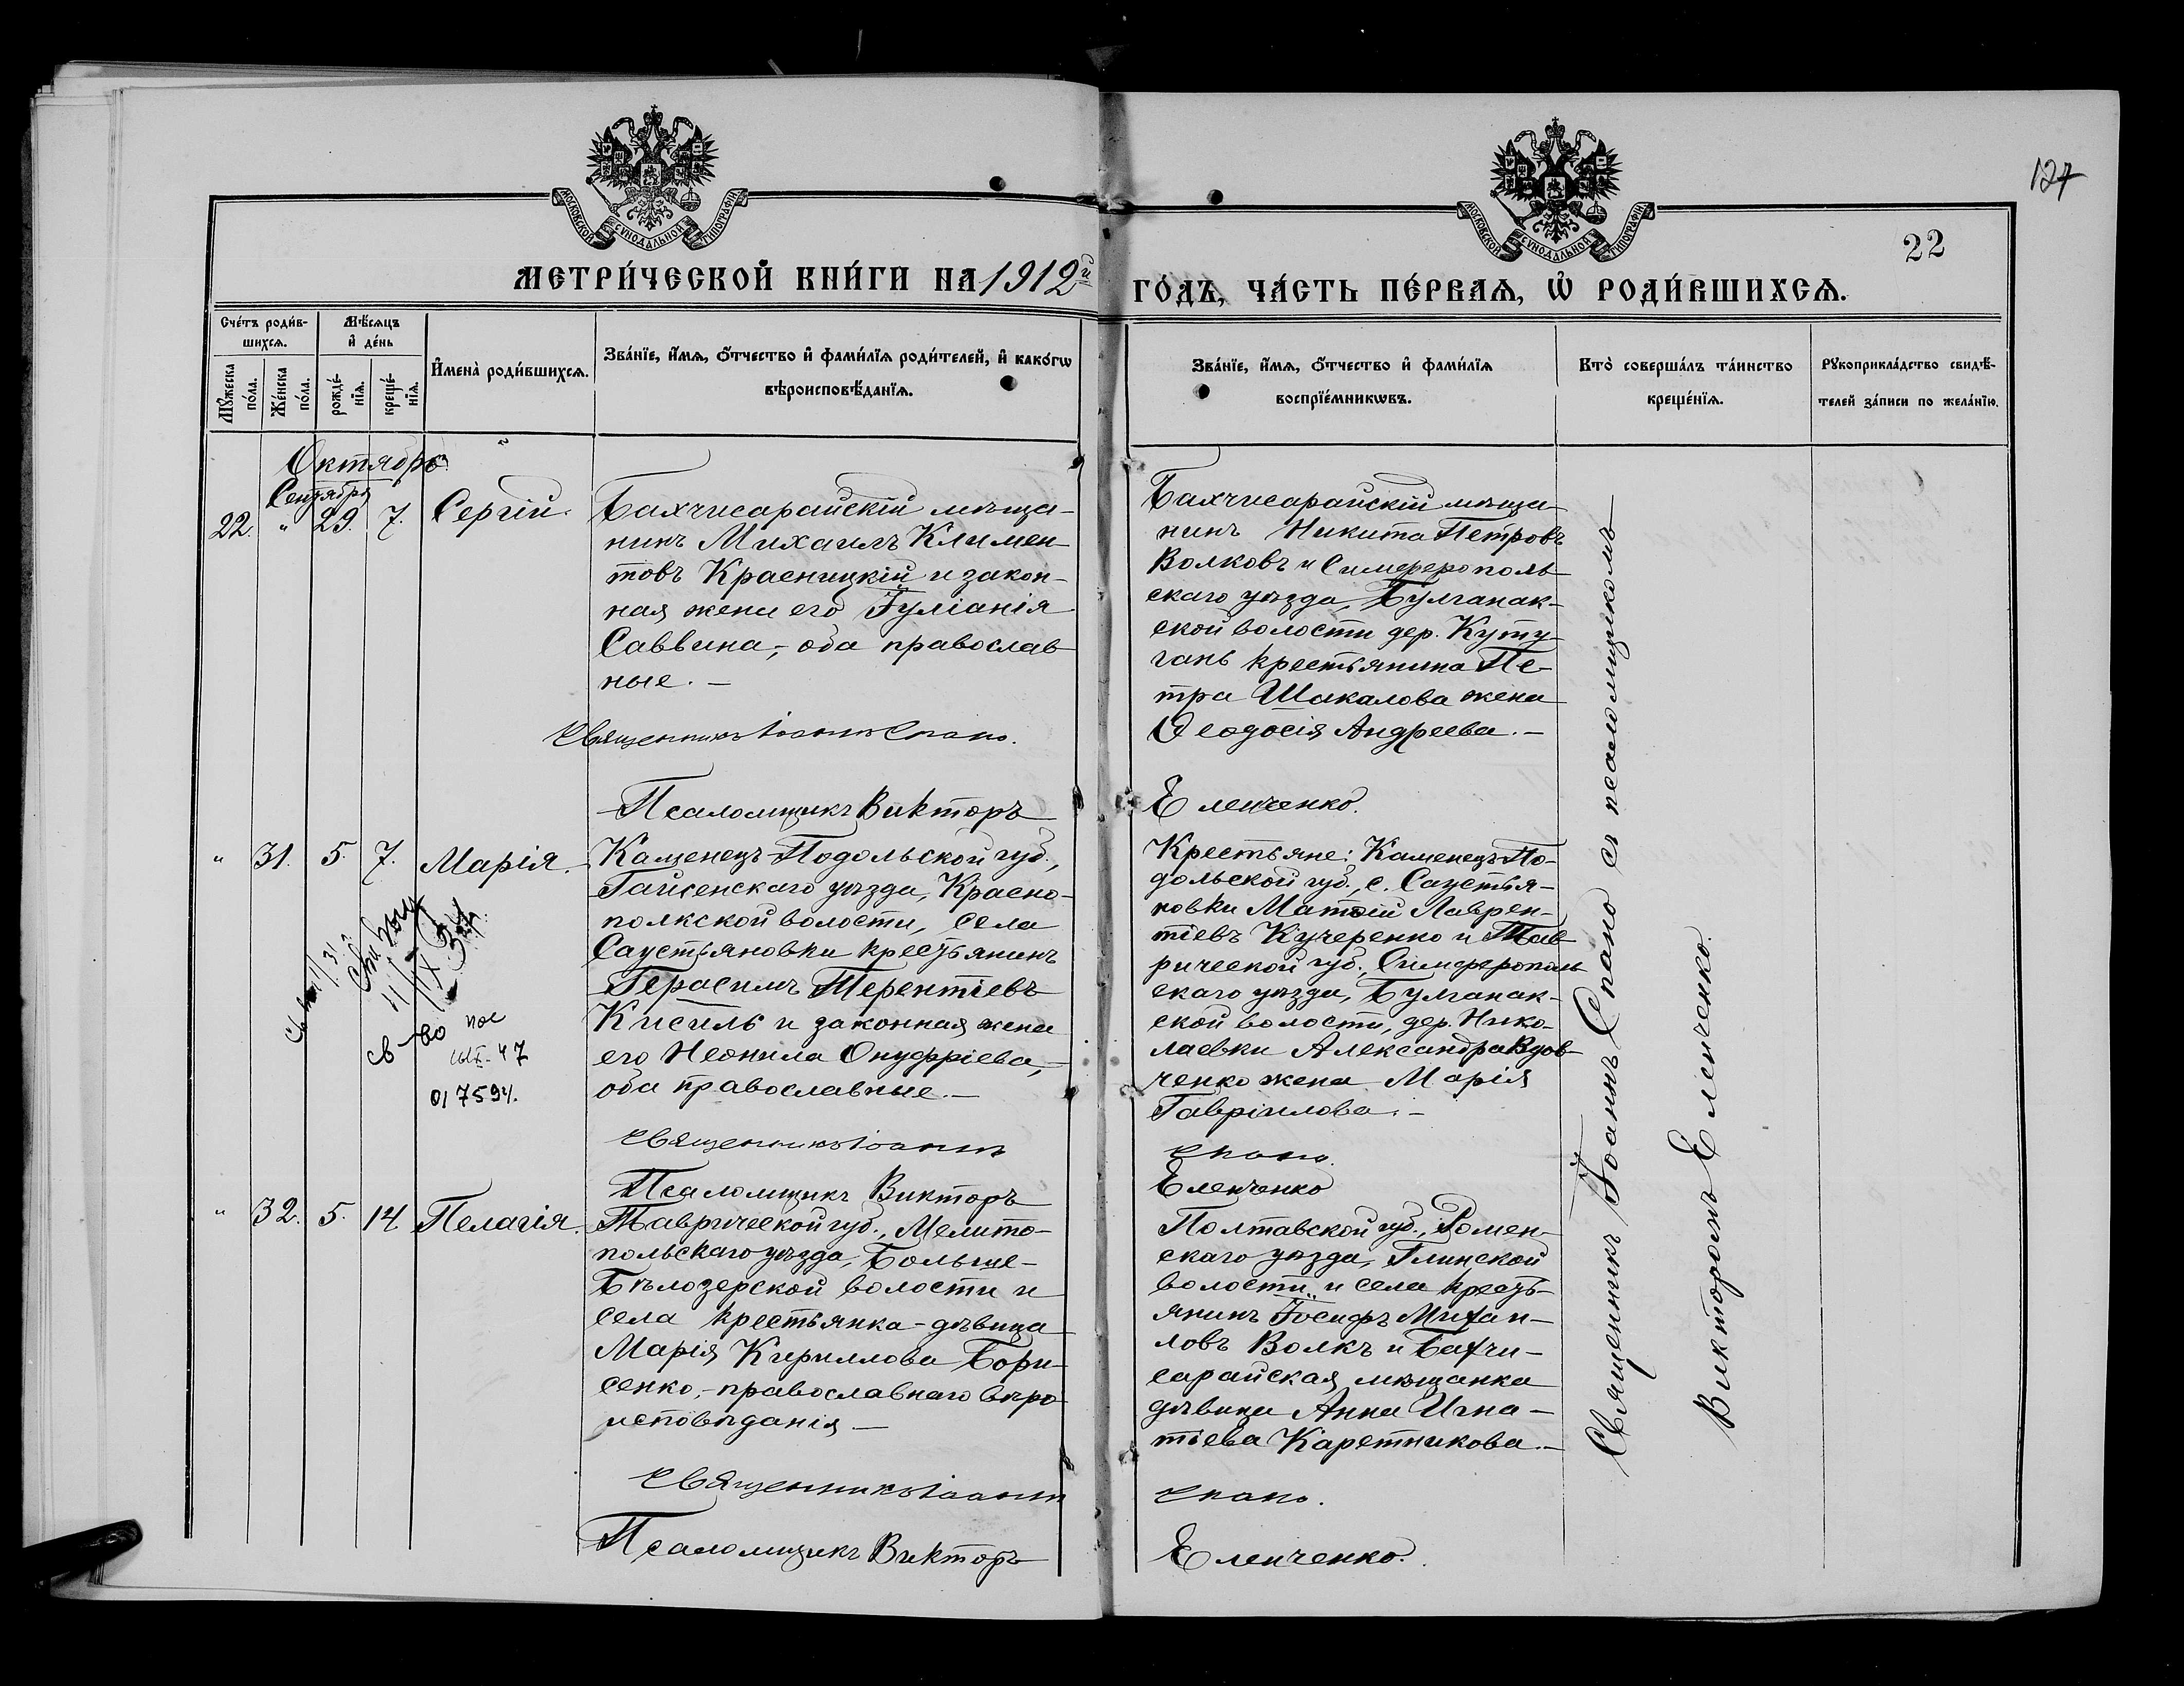 127
22
МОСКОВСКОЙ СѴНОДАЛЬНОЙ ТИПОГРАФІИ
МОСКОВСКОЙ СѴНОДАЛЬНОЙ ТИПОГРАФІИ
МЕТРИ́ЧЕСКОЙ КНИ́ГИ НА 1912й
ГО́ДЪ, ЧА́СТЬ ПЕ́РВАѦ, Ѡ҆ РОДИ́ВШИХСѦ.
Сче́тъ роди́в-
шихсѧ.
Мꙋ́жеска по́ла.
Же́нска по́ла.
Мѣ́сѧцъ
и҆ де́нь
рожде́-
нїѧ.
креще́-
нїѧ.
И҆мена̀ роди́вшихсѧ.
Зва́нїе, и҆́мѧ, ѻ҆́тчество и҆ фами́лїѧ роди́телей, и҆ како́гѡ
вѣроисповѣ́данїѧ.
Зва́нїе, и҆́мѧ, ѻ҆́тчество и҆ фами́лїѧ
воспрїе́мникѡвъ.
Кто̀ соверша́лъ та́инство
креще́нїѧ.
Рꙋкоприкла́дство свидѣ́-
телей за́писи по жела́нїю.
Октябрь
Сентября
22. " 29. 7. Сергій.
Бахчисарайскій мѣща-
нинъ Михаилъ Климен-
товъ Красницкій и закон-
ная жена его Іуліанія
Саввина, - оба православ
ные. –
Священникъ Іоаннъ Спано.
Псаломщикъ Викторъ
Бахчисарайскій мѣща-
нинъ Никита Петровъ
Волковъ и Симферополь
скаго уѣзда, Булганак-
ской волости дер. Куту-
гань крестьянина Пе-
тра Шакалова жена
Ѳеодосія Андреева. –
Еленченко.
" 31. 5. 7. Марія.
Каменецъ-Подольской губ.,
Гайсенскаго уѣзда, Красно-
полкской волости, села
Саустьяновки крестьянинъ
Герасимъ Терентіевъ
Кисиль и законная жена
его Неонила Онуфріева, –
оба православные. –
Священникъ Іоаннъ
Псаломщикъ Викторъ
св-во
017594.
Крестьяне: Каменецъ-По-
дольской губ., с. Саустья-
новки Матѳій Лаврен-
тіевъ Кучеренко и Тав
рической губ., Симферополь
скаго уѣзда, Булганак-
ской волости, дер. Нико-
лаевки Александра Вдов-
ченко жена Марія
Гавріилова. –
Спано.
Еленченко
" 32. 5. 14 Пелагія.
Таврической губ., Мелито-
польскаго уѣзда, Больше-
Бѣлозерской волости и
села крестьянка-дѣвица
Марія Кириллова Бори-
сенко, - православнаго вѣро
исповѣданія –
Священникъ Іоаннъ
Псаломщикъ Викторъ
Полтавской губ., Ромен-
скаго уѣзда, Глинской
волости и села кресть-
янинъ Іосифъ Михаи-
ловъ Волкъ и Бахчи-
сарайская мѣщанка
дѣвица Анна Игна-
тіева Каретникова. –
Спано.
Еленченко.
Священникъ Іоаннъ Спано съ псаломщикомъ
Викторомъ Еленченко.